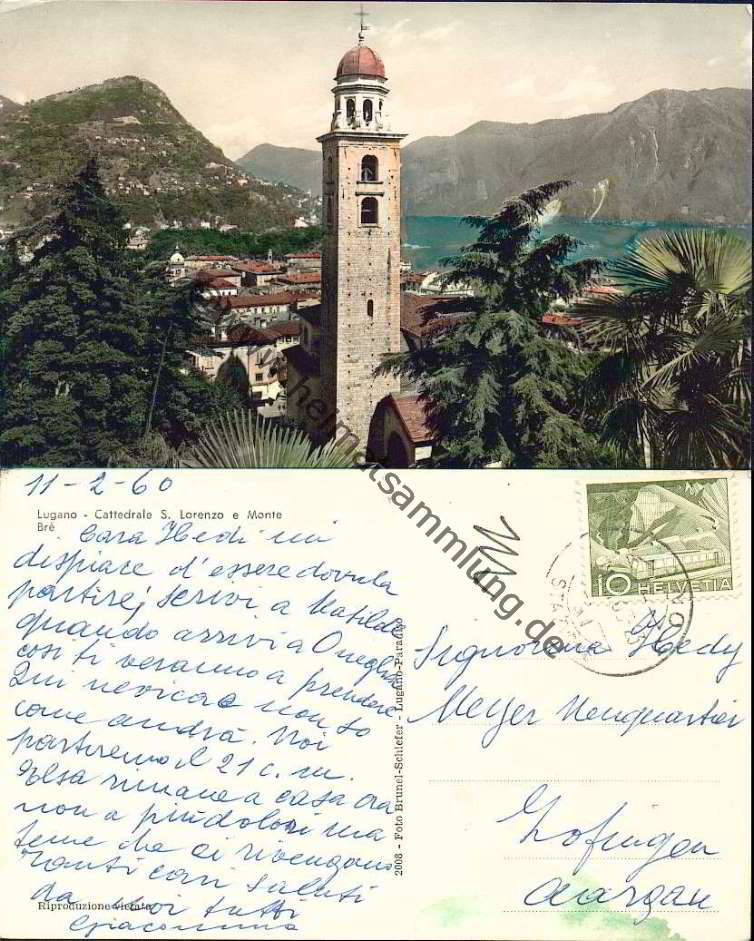 11-2-60
Lugano - Cattedrale S. Lorenzo e Monte
Brè
Cara Hedi mi
dispiace d'essere dovuta
partire, scrivi a Matilde
quando arrivi a Oneglia
così ti veranno a prendere
Qui nevica e non so
come andrà. Noi
partiremo il 21 c. m.
Elsa rimane a casa ora
non a più dolori ma
teme che ci rivengano
Tanti cari saluti
da noi tutti
Giacomina
Riproduzione vietata
2008 - Foto Brunel-Schiefer - Lugano-Paradiso
10 HELVETIA
Signorina Hedy
Meyer Neuquartier
Zofingen
Aargau
heimatsammlung.de